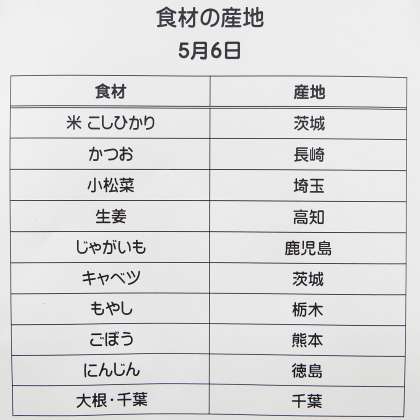 食材の産地
5月6日
食材 産地
米 こしひかり 茨城
かつお 長崎
小松菜 埼玉
生姜 高知
じゃがいも 鹿児島
キャベツ 茨城
もやし 栃木
ごぼう 熊本
にんじん 徳島
大根・千葉 千葉